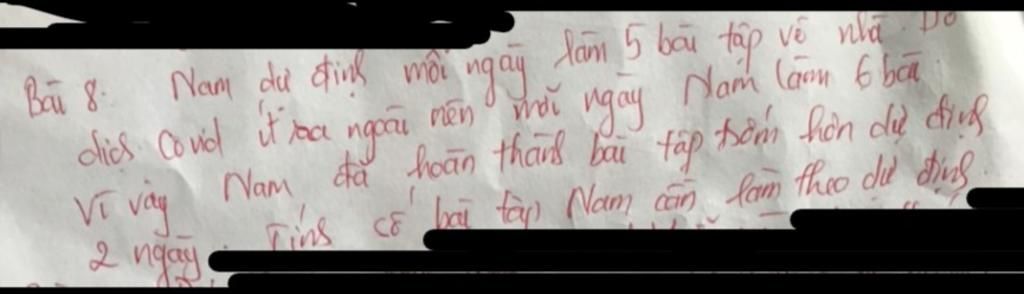 Bài 8: Nam dự định mỗi ngày làm 5 bài tập về nhà. Do
dịch Covid ít ra ngoài nên mỗi ngày Nam làm 6 bài.
Vì vậy Nam đã hoàn thành bài tập sớm hơn dự định
2 ngày. Tính số bài tập Nam cần làm theo dự định.